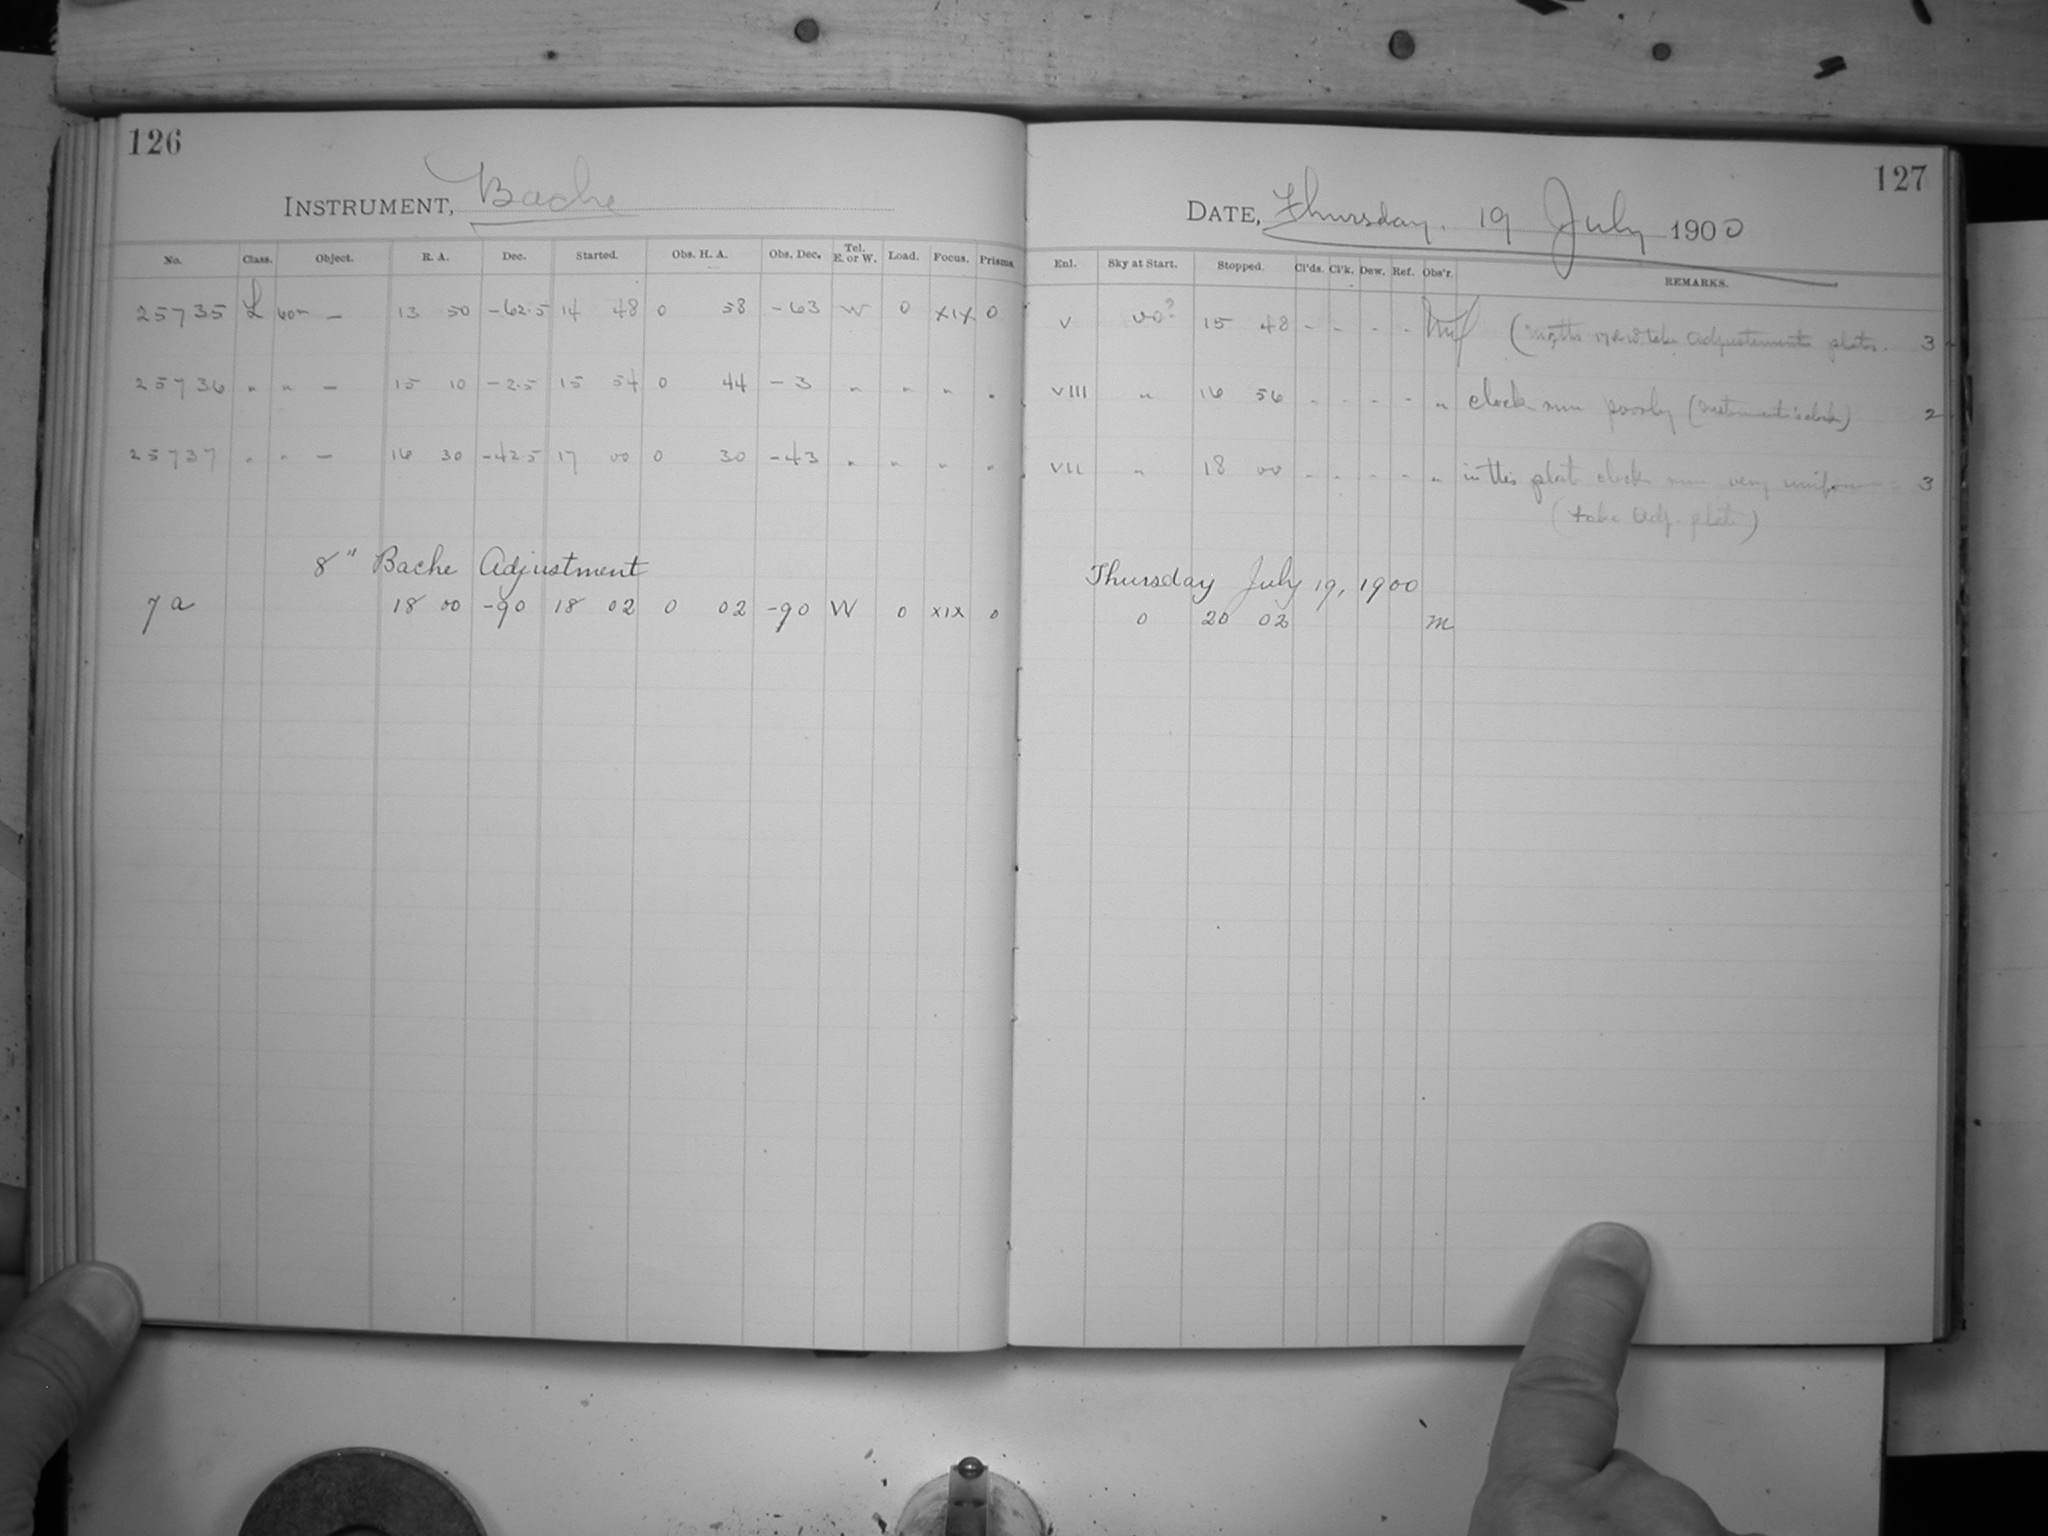 126
INSTRUMENT, Bache
No. Class. Object. R. A. Dec. Started. Obs. H. A. Obs. Dec. Tel. E. or W. Load. Focus. Prisms.
25735 L 60m — 13 50 -62.5 14 48 0 58 -63 W 0 XIX 0
25736 " " — 15 10 -2.5 15 54 0 44 -3 " " " "
25737 " " — 16 30 -42.5 17 00 0 30 -43 " " " "
8" Bache Adjustment
7a 18 00 -90 18 02 0 02 -90 W 0 XIX 0
127
DATE, Thursday. 19 July 1900
Enl. Sky at Start. Stopped. Cl'ds. Cl'k. Dew. Ref. Obs'r. REMARKS.
V 00? 15 48 - - - - take adjustements plates. 3
VIII " 16 56 - - - - " clock run poorly (instrument's clock) 2
VII " 18 00 - - - - " in this plat clock run very uniform 3
(take adj. plat)
Thursday July 19, 1900
0 20 02 m